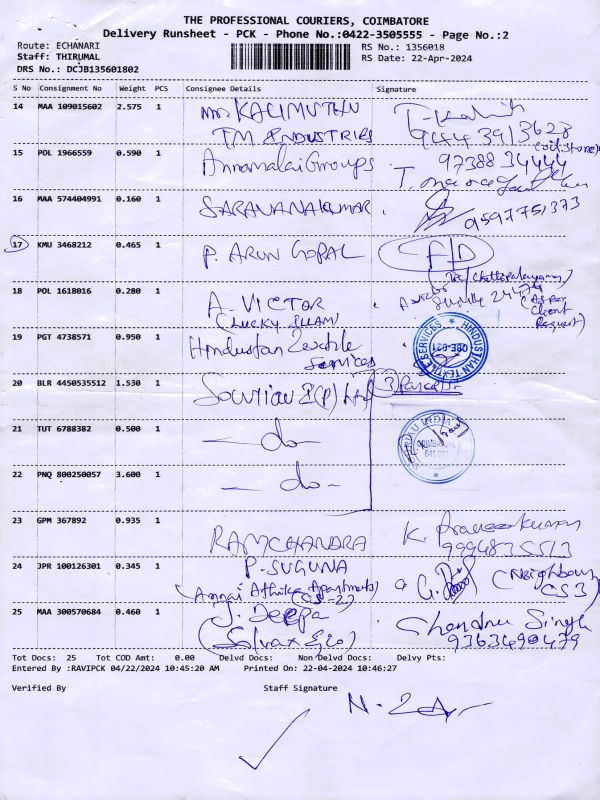 THE PROFESSIONAL COURIERS, COIMBATORE
Delivery Runsheet - PCK - Phone No.:0422-3505555 - Page No.:2
Route: ECHANARI
RS No.: 1356018
Staff: THIRUMAL
RS Date: 22-Apr-2024
DRS No.: DCJB135601802
S No Consignment No Weight PCS Consignee Details Signature
14 MAA 109015602 2.575 1 KALIMUTHU
TM INDUSTRIES 9444 3913628
15 POL 1966559 0.590 1 Annamalai Groups 97388 34444
16 MAA 574404991 0.160 1 SARAVANAKUMAR. 9597751373
17 KMU 3468212 0.465 1 P. ARUN GOPAL F/D
18 POL 1618016 0.280 1 A. VICTOR
(As Per
Client
Request)
19 PGT 4738571 0.950 1 Hindustan Textile
Services
HINDUSTHAN TEXTILE SERVICES
CBE-021
20 BLR 4450535512 1.530 1 Souriau I (P) Ltd 3 Parcels
21 TUT 6788382 0.500 1 — do —
INDIA
641 021
22 PNQ 800250057 3.600 1 — do —
23 GPM 367892 0.935 1 RAMCHANDRA K. Praveenkumar
9994835513
24 JPR 100126301 0.345 1 P. SUGUNA
(Annai Apartments) (Neighbour
CS3)
25 MAA 300570684 0.460 1 J. Deepa Chandru Singh
9363490479
Tot Docs: 25 Tot COD Amt: 0.00 Delvd Docs: Non Delvd Docs: Delvy Pts:
Entered By :RAVIPCK 04/22/2024 10:45:20 AM Printed On: 22-04-2024 10:46:27
Verified By Staff Signature